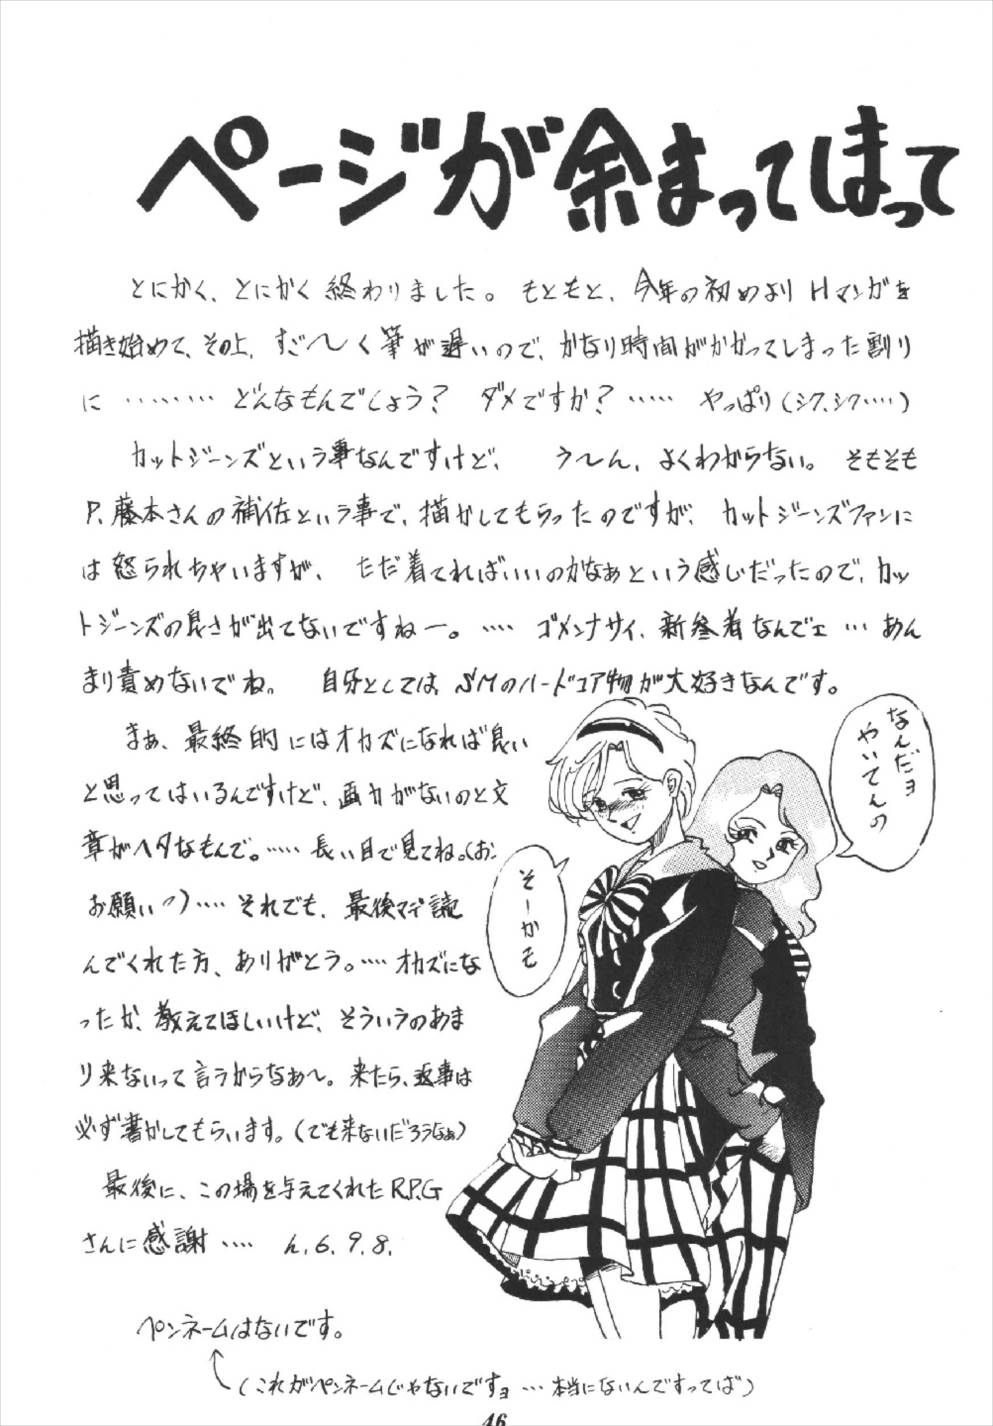 ページが余まってしまって
とにかく、とにかく終わりました。もともと、今年の初めよりHマンガを
描き始めて、その上、すご〜く筆が遅いので、かなり時間がかかってしまった割り
に ……… どんなもんでしょう? ダメですか? …… やっぱり(シク、シク……)
カットジーンズという事なんですけど、 う〜ん、よくわからない。 そもそも
P,藤本さんの補佐という事で、描かしてもらったのですが、カットジーンズファンに
は怒られちゃいますが、 ただ着てればいいのかなぁという感じだったので、カッ
トジーンズの良さが出てないですねー。…… ゴメンナサイ、新参者なんでェ … あん
まり責めないでね。 自分としては、SMのハードコア物が大好きなんです。
まぁ、最終的にはオカズになれば良い
と思ってはいるんですけど、画力がないのと文
章がヘタなもんで。…… 長い目で見てね。(お、
お願いっ)…… それでも、最後マデ読
んでくれた方、ありがとう。…… オカズにな
ったか、教えてほしいけど、そういうのあま
り来ないって言うからなあ〜。来たら、返事は
必ず書かしてもらいます。(でも来ないだろうなぁ)
最後に、この場を与えてくれたR.P.G
さんに感謝 …… h.6.9.8.
なんだョ
やいてんの
そーかも
ペンネームはないです。
(これがペンネームじゃないですョ … 本当にないんですってば)
46